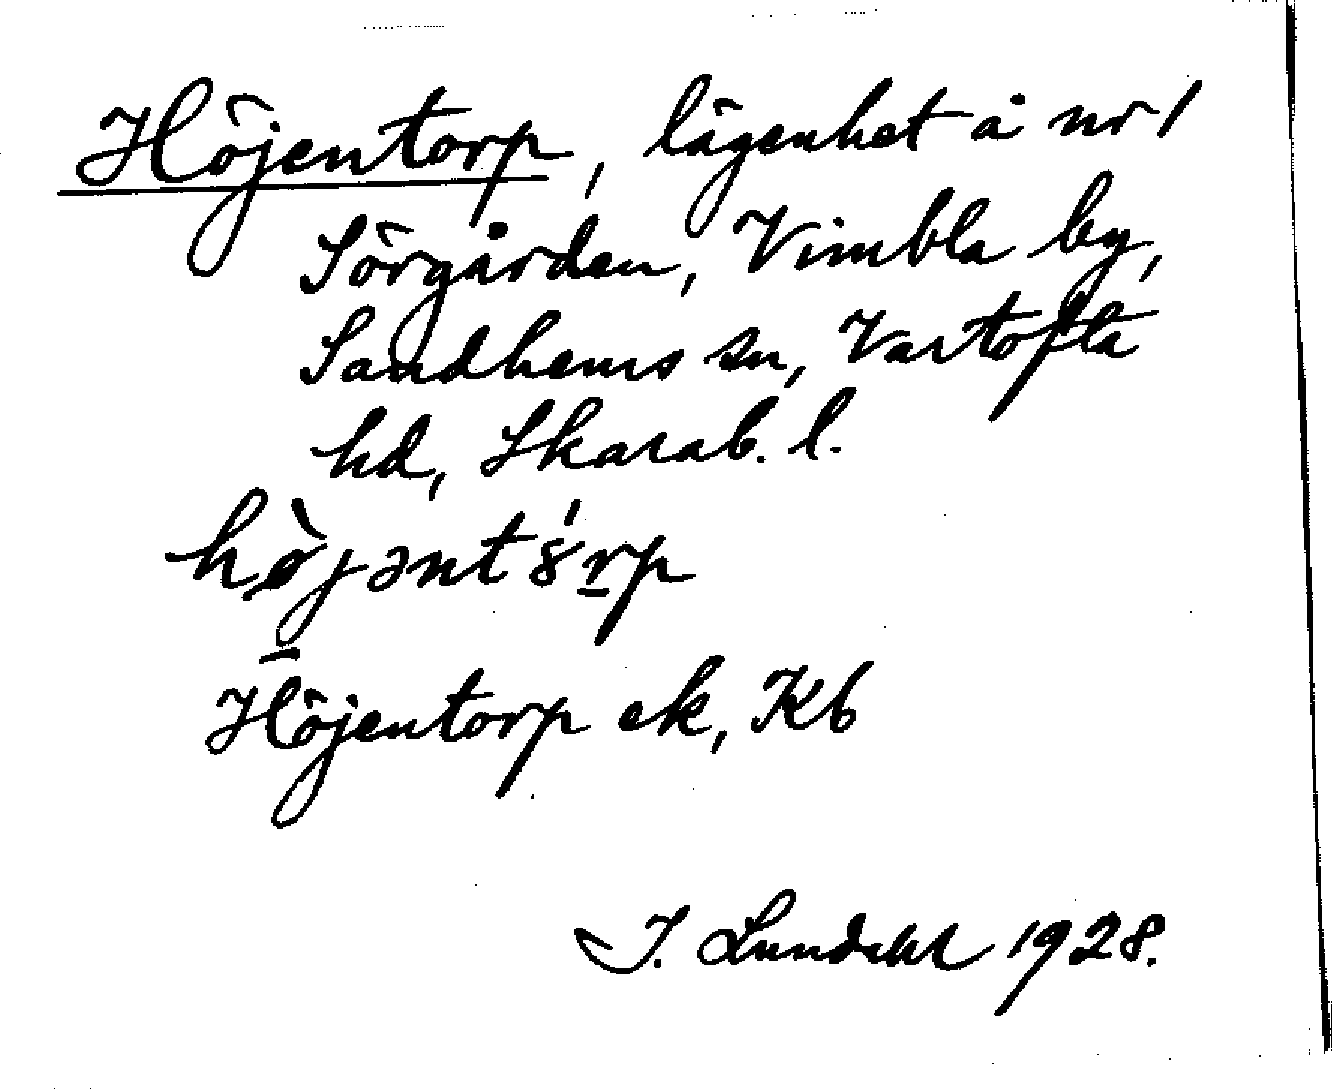 Höjentorp, lägenhet å nr 1
Sörgården, Vimbla by,
Sandhems sn, Vartofta
hd, Skarab. l.
hø̀jənt8́r̲p
Höjentorp ek, Kb
I. Lundahl 1928.